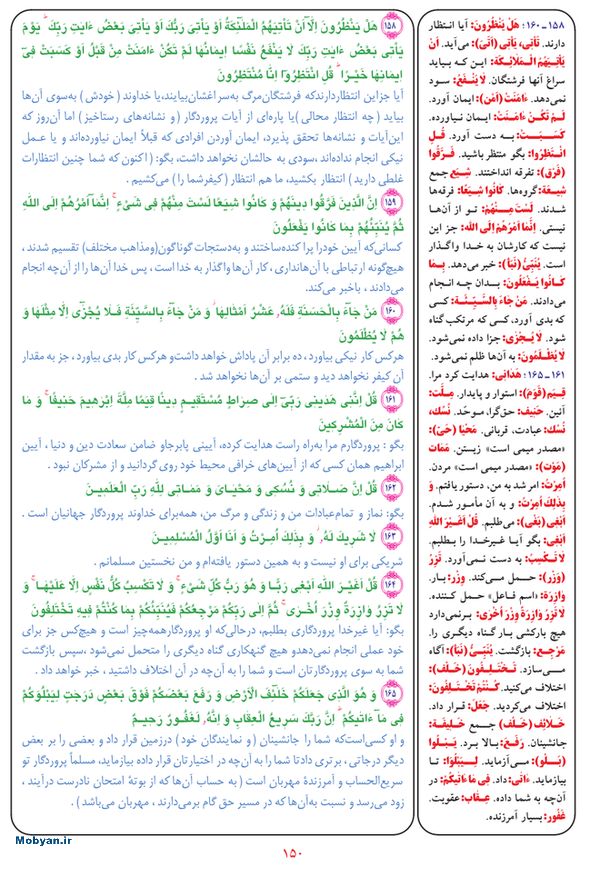 ۱۵۸ هَلْ يَنْظُرُونَ اِلَّآ اَنْ تَاْتِيَهُمُ الْمَلٰٓئِكَةُ اَوْ يَاْتِىَ رَبُّكَ اَوْ يَاْتِىَ بَعْضُ ءَايٰتِ رَبِّكَ ۗ يَوْمَ
يَاْتِى بَعْضُ ءَايٰتِ رَبِّكَ لَا يَنْفَعُ نَفْسًا ايمَانُهَا لَمْ تَكُنْ ءَامَنَتْ مِنْ قَبْلُ اَوْ كَسَبَتْ فِى
ايمَانِهَا خَيْرًا ۗ قُلِ انْتَظِرُوٓا اِنَّا مُنْتَظِرُونَ
آیا جزاین انتظاردارندکه فرشتگان‌مرگ به‌سراغشان‌بیایند،یا خداوند (خودش) به‌سوی آن‌ها
بیاید (چه انتظار محالی)یا پاره‌ای از آیات پروردگار (و نشانه‌های رستاخیز) اما آن‌روز که
این‌آیات و نشانه‌ها تحقق پذیرد، ایمان آوردن افرادی که قبلاً ایمان نیاورده‌اند و یا عـمل
نیکی انجام نداده‌اند ،سودی به حالشان نخواهد داشت، بگو: (اکنون که شما چنین انتظارات
غلطی دارید) انتظار بکشید، ما هم انتظار (کیفرشما را) می‌کشیم .
۱۵۹ اِنَّ الَّذينَ فَرَّقُوا دينَهُمْ وَ كَانُوا شِيَعًا لَسْتَ مِنْهُمْ فِى شَىْءٍ ۚ اِنَّمَآ اَمْرُهُمْ اِلَى اللهِ
ثُمَّ يُنَبِّئُهُمْ بِمَا كَانُوا يَفْعَلُونَ
کسانی‌که آیین خودرا پرا کنده‌ساختند و به‌دستجات گوناگون(ومذاهب مختلف) تقسیم شدند ،
هیچ‌گونه ارتباطی با آن‌هانداری ، کار آن‌ها واگذار به خدا است ، پس خدا آن‌ها را از‌آن‌چه انجام
می‌دادند ، باخبر می‌کند.
۱۶۰ مَنْ جَآءَ بِالْحَسَنَةِ فَلَهُ, عَشْرُ اَمْثَالِهَا ۖ وَ مَنْ جَآءَ بِالسَّيِّئَةِ فَـلَا يُجْزٰٓى اِلَّا مِثْلَهَا وَ
هُمْ لَا يُظْلَمُونَ
هرکس کار نیکی بیاورد ، ده برابر آن پاداش خواهد داشت‌و هرکس کار بدی بیاورد ، جز به مقدار
آن کیفر نخواهد دید و ستمی بر آن‌ها نخواهد شد .
۱۶۱ قُلْ اِنَّنِى هَدٰينِى رَبِّىٓ اِلٰى صِرَاطٍ مُسْتَقِيمٍ دينًا قِيَمًا مِلَّةَ اِبْرٰهيمَ حَنيفًا ۚ وَ مَا
كَانَ مِنَ الْمُشْرِكينَ
بگو : پروردگارم مرا به‌راه راست هدایت کرده، آیینی پابرجاو ضامن سعادت دین و دنیا ، آیین
ابراهیم همان کسی که از آیین‌های خرافی محیط خود روی گردانید و از مشرکان نبود .
۱۶۲ قُلْ اِنَّ صَـلَاتِى وَ نُسُكِى وَ مَحْيَاىَ وَ مَمَاتِى لِلّٰهِ رَبِّ الْعٰلَمينَ
بگو: نماز و تمام‌عبادات من و زندگی و مرگ من، همه‌برای خداوند پروردگار جهانیان است .
۱۶۳ لَا شَرِيكَ لَهُ, ۖ وَ بِذٰلِكَ اُمِرْتُ وَ اَنَا اَوَّلُ الْمُسْلِمينَ
شریکی برای او نیست و به همین دستور یافته‌ام‌و من نخستین مسلمانم .
۱۶۴ قُلْ اَغَيْرَ اللهِ اَبْغِى رَبًّا وَ هُوَ رَبُّ كُلِّ شَىْءٍ ۚ وَ لَا تَكْسِبُ كُلُّ نَفْسٍ اِلَّا عَلَيْهَا ۚ وَ
لَا تَزِرُ وَازِرَةٌ وِزْرَ اُخْرٰى ۚ ثُمَّ اِلٰى رَبِّكُمْ مَرْجِعُكُمْ فَيُنَبِّئُكُمْ بِمَا كُنْتُمْ فِيهِ تَخْتَلِفُونَ
بگو: آیا غیرخدا پروردگاری بطلبم، درحالی‌که او پروردگارهمه‌چیز است و هیچ‌کس جز برای
خود عملی انجام نمی‌دهدو هیچ گنهکاری گناه دیگری را متحمل نمی‌شود ،سپس بازگشت
شما به سوی پروردگارتان است و شما را به آن‌چه در آن اختلاف داشتید ، خبر خواهد داد .
۱۶۵ وَ هُوَ الَّذى جَعَلَكُمْ خَلٰٓئِفَ الْاَرْضِ وَ رَفَعَ بَعْضَكُمْ فَوْقَ بَعْضٍ دَرَجٰتٍ لِيَبْلُوَكُمْ
فِى مَآ ءَاتٰيكُمْ ۗ اِنَّ رَبَّكَ سَرِيعُ الْعِقَابِ وَ اِنَّهُ, لَغَفُورٌ رَحِيمٌ
و او کسی‌است‌که شما را جانشینان (و نمایندگان خود) درزمین قرار داد و بعضی را بر بعض
دیگر درجاتی ، برتری دادتا شما را به آن‌چه در اختیارتان قرار داده بیازماید، مسلماً پروردگار تو
سریع‌الحساب و آمرزندهٔ مهربان است (به حساب آن‌ها که از بوتهٔ امتحان نادرست درآیند ،
زود می‌رسد و نسبت به‌آن‌ها‌که در مسیر حق گام برمی‌دارند ، مهربان می‌باشد) .
۱۵۸ـ۱۶۰: هَلْ يَنْظُرُونَ: آیا انتظار
دارند. تَأتى، يَأتى (أتىَ): می‌آید. أَن
يَأتِيَهُمُ الْمَـلٰٓئِكَةُ: این که بـیاید
سراغ آنها فرشتگان. لَا يَنْفَعُ: سود
نمی‌دهد. ءَامَنَتْ (أمن): ایمان آورد.
لَـمْ تَكُنْ ءَامَنَتْ: ایمان نیاورده.
كَسَـبَـتْ: بـه دست آورد. قُـلِ
انْتَظِرُوا: بگو منتظر باشید. فَـرَّقُوا
(فَرَق): تفرقه انداختند. شِيَع جمع
شيعَة: گروه‌ها. كَانُوا شِيَعًا: فرقه‌ها
شدند. لَسْتَ مِـنْهُمْ: تو از آن‌ها
نیستی. إِنَّمَا أَمْرُهُمْ إِلَى الله: جز این
نیست که کارشان به خدا واگذار
است. يُنَبِّئُ (نَبَأ): خبر می‌دهد. بِمَا
كَانُوا يَفْعَلُونَ: بدان چه انـجام
می‌دادند. مَنْ جَاءَ بِالسَّيِّئَـةِ: کسی
که بدی آورد، کسی که مرتکب گناه
شود. لَا يُجْزٰى: جزا داده نمی‌شود.
لَا يُظْلَمُونَ: به آن‌ها ظلم نمی‌شود.
۱۶۱ـ۱۶۵: هَدَانِى: هدایت کرد مرا.
قِـيَم (قَوَمَ): استوار و پایدار. مِـلَّت:
آئین. حَنيف: حق‌گرا، موحّد. نُسُك،
نُسْك: عبادت، قربانی. مَحْيَا (حَىَّ):
«مصدر میمی است» زیستن. مَمَات
(مَوْت): «مصدر میمی است» مردن.
أُمِرْتُ: امر شد به من، دستور یافتم. وَ
بِذٰلِكَ أُمِرْتُ: و به آن مأمور شـدم.
أَبْغى (بَغى): می‌طلبم. قُلْ أَغَيْرَ اللهِ
أَبْغى: بگو آیـا غیرخدا را بطلبم.
لَا تَكْسِبُ: به دست نمی‌آورد. تَزِرُ
(وَزَرَ): حـمل مـی‌کند. وِزْر: بـار.
وَازِرَة: «اسم فـاعل» حمل کـننده.
لَا تَزِرُ وَازِرَةٌ وِزْرَ أُخْرٰى: برنمی‌دارد
هیچ بارکشی بـارگناه دیگری را.
مَرْجِـع: بازگشت. يُنَبِّـئُ (نَبَأ): آگاه
مــی‌سازد. تَـخْـتَـلِـفُـونَ (خَلَف):
اختلاف می‌کنید. كُـنْتُمْ تَخْتَـلِفُونَ:
اختلاف می‌کردید. جَعَلَ: قرار داد.
خَلَائِف (خَلَف) جـمع خَليفَة:
جانشینان. رَفَعَ: بـالا برد. يَـبْـلُوا
(بَـلَوَ): مـی‌آزماید. لِـيَبْلُوَا: تـا
بیازماید. ءَاتٰى: داد. فِى مَا ءَاتٰيكُمْ: در
آن‌چه به شما داده. عِقَاب: عقوبت.
غَفُور: بسیار آمرزنده.
Mobyan.ir
۱۵۰